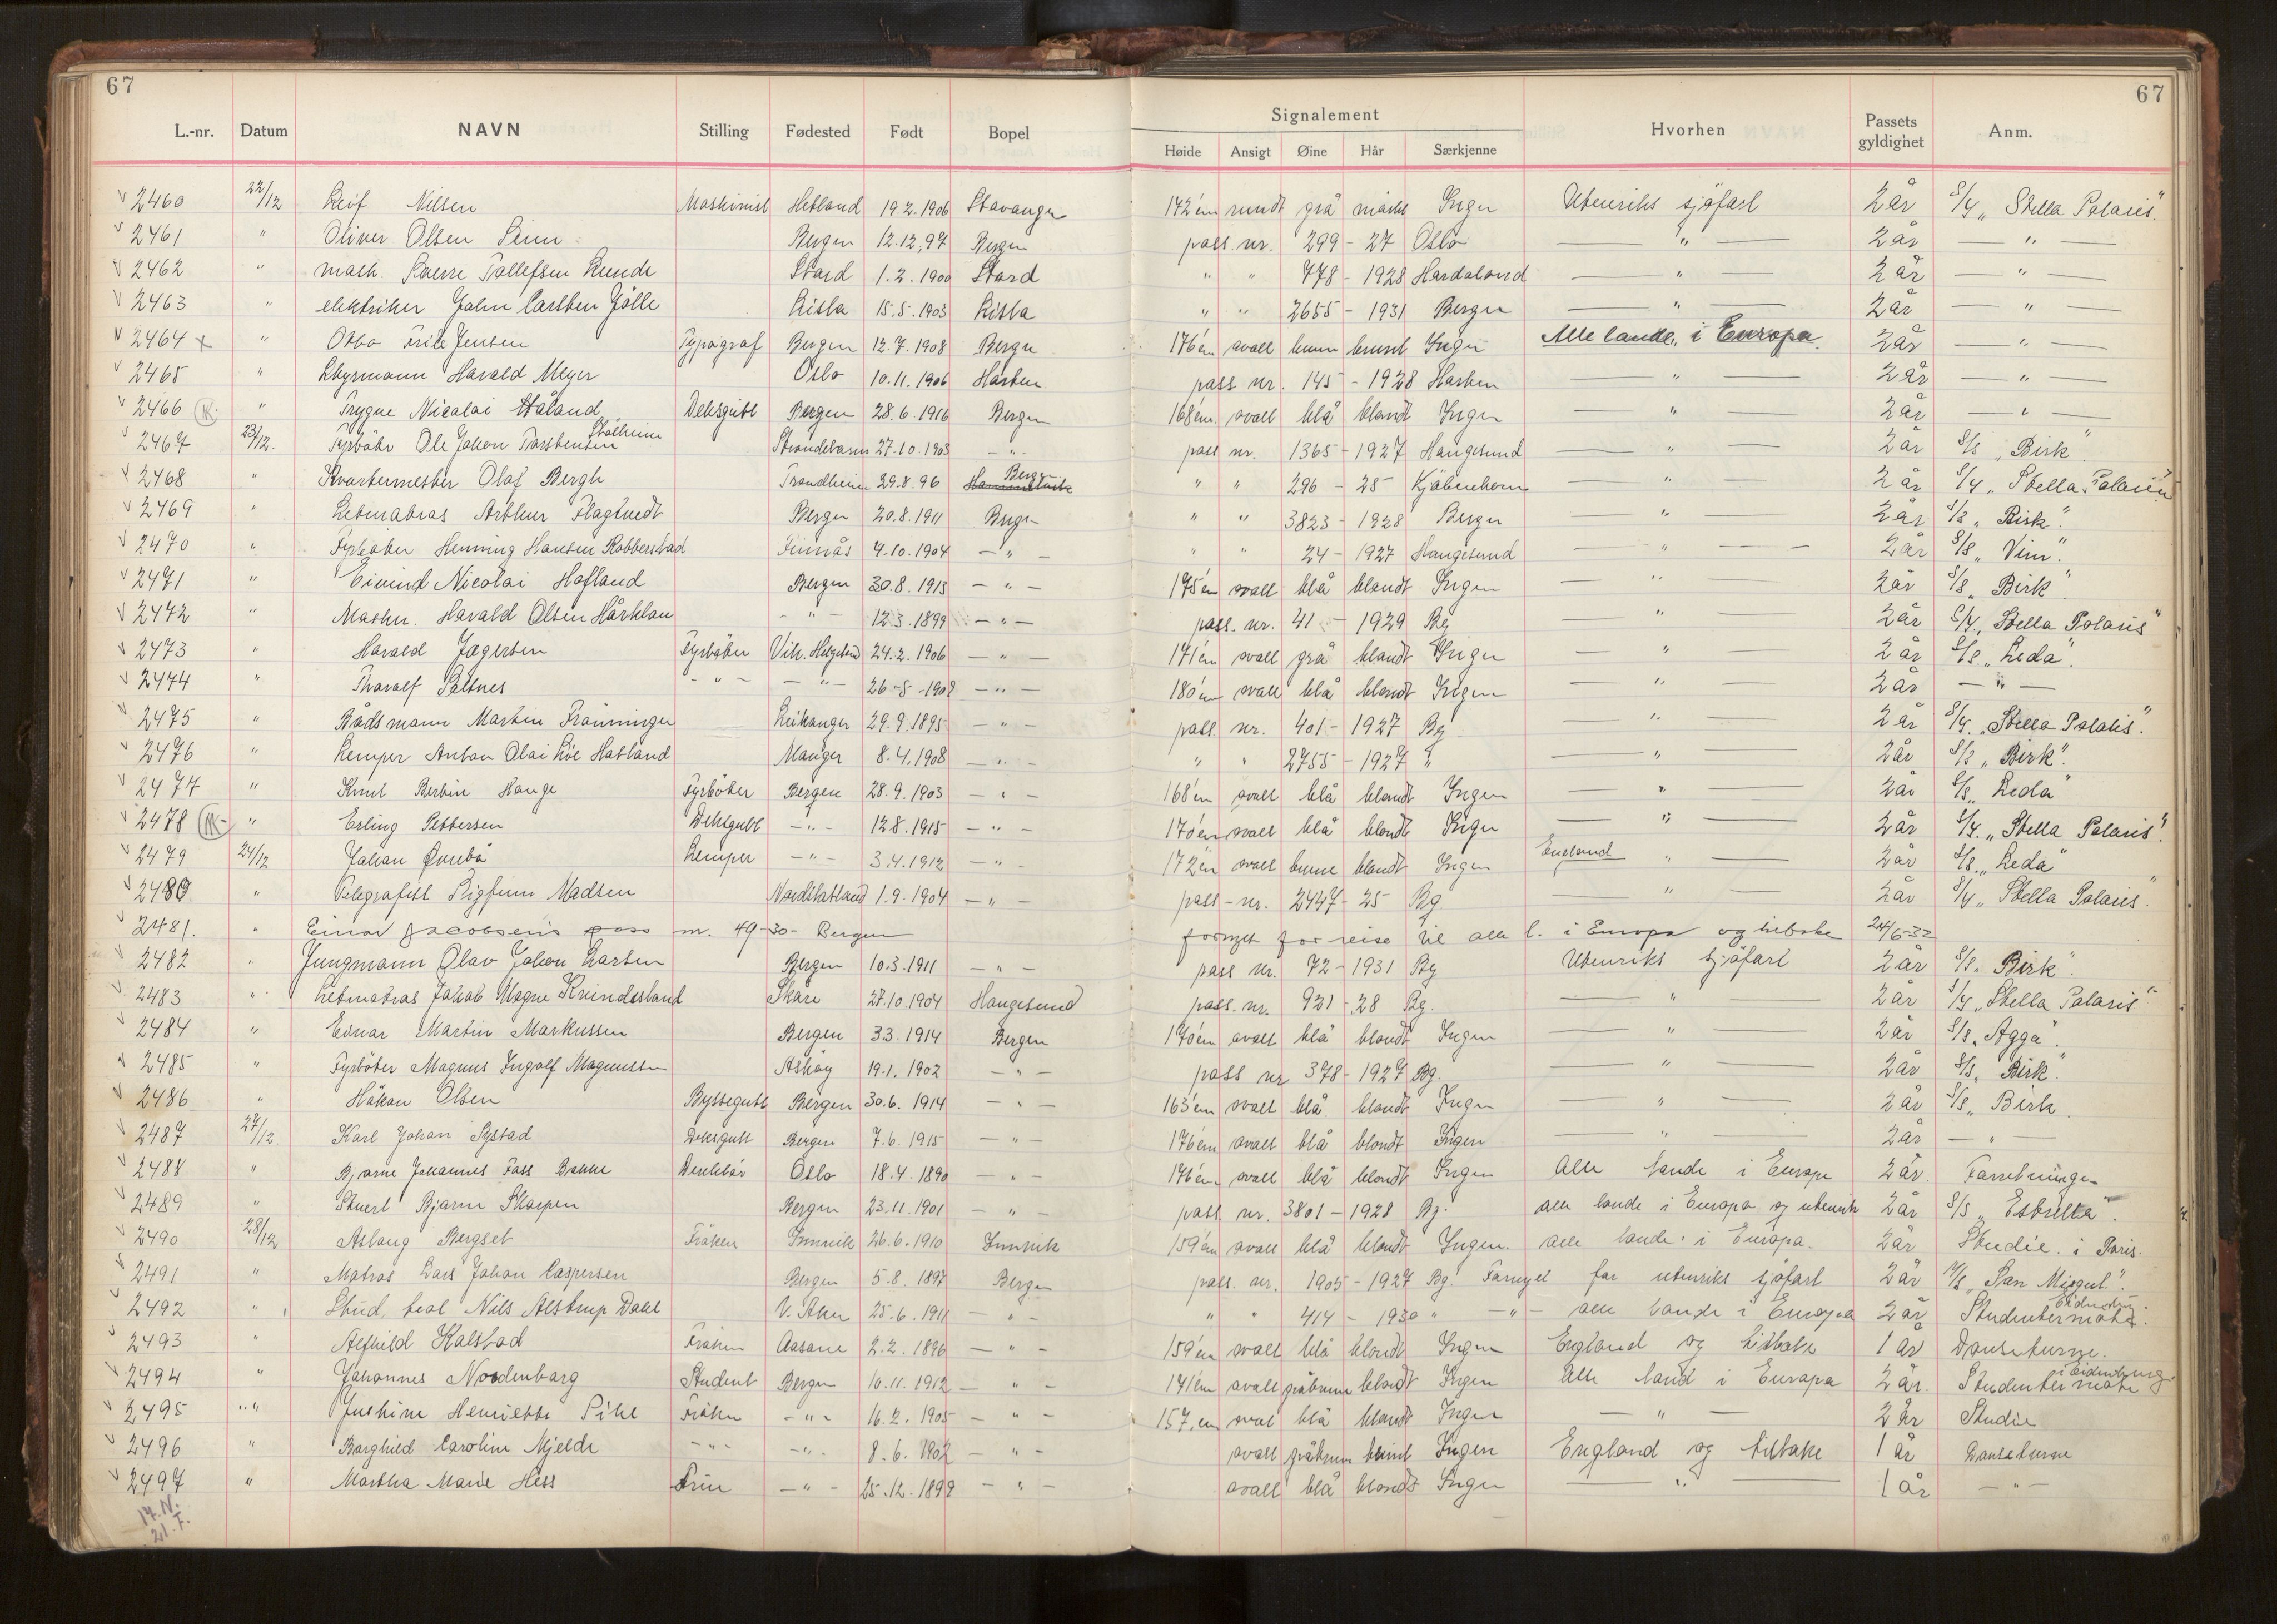 67
67
L.-nr. Datum NAVN Stilling Fødested Født Bopel
Signalement
Høide Ansigt Øine Hår Særkjenne Hvorhen Passets gyldighet Anm.
2460 22/12 Leif Nilsen Maskinist Hetland 19.2.1906 Stavanger 172 cm rundt grå mørkt Ingen Utenriks sjøfart 2 år S/Y „Stella Polaris".
2461 " Oliver Olsen Bergen 12.12.97 Bergen pass nr. 299 - 27 Oslo — " — 2 år — " —
2462 " mask. Sverre Tollefsen Lunde Stord 1.2.1900 Stord " " 778 - 1928 Hordaland — " — 2 år — " —
2463 " elektriker John Carlsen Jølle Lista 15.5.1903 Lista " " 2655 - 1931 Bergen — " — 2 år — " —
2464 x " Otto Jensen Typograf Bergen 12.7.1908 Bergen 176 cm ovalt brune brunt Ingen Alle lande i Europa 2 år — " —
2465 " Styrmann Harald Meyer Oslo 10.11.1906 Horten pass nr. 145 - 1928 Horten — " — 2 år — " —
2466 K. " Trygve Nicolai Håland Dekksgutt Bergen 28.6.1916 Bergen 168 cm. ovalt blå blondt Ingen — " — 2 år — " —
2467 23/12. Fyrbøter Ole Johan Torstensen Stolheim Strandebarm 27.10.1903 — " — pass nr. 1365 - 1927 Haugesund — " — 2 år S/S „Birk".
2468 " Kvartermester Olaf Bergh Trondheim 29.8.96 Bergen " " 296 - 25 Kjøbenhavn — " — 2 år S/Y „Stella Polaris"
2469 " Letmatros Arthur Flagtvedt Bergen 20.8.1911 Bergen " " 3823 - 1928 Bergen — " — 2 år S/S „Birk".
2470 " Fyrbøter Henning Hansen Robberstad Finnås 4.10.1904 — " — " " 24 - 1927 Haugesund — " — 2 år S/S „Vim".
2471 " Eivind Nicolai Hofland Bergen 30.8.1913 — " — 175 cm ovalt blå blondt Ingen — " — 2 år S/S „Birk".
2472 " Maskn. Harald Olsen — " — 12.3.1899 — " — pass. nr. 41 - 1929 Bg — " — 2 år S/Y „Stella Polaris"
2473 " Harald Jægersen Fyrbøter Vik. Helgeland 24.2.1906 — " — 171 cm ovalt grå blondt Ingen — " — 2 år S/S. „Leda".
2474 " Thoralf Saltnes — " — — " — 26-5-1908 — " — 180 cm ovalt blå blondt Ingen — " — 2 år — " —
2475 " Bådsmann Martin Frønningen Leikanger 29.9.1895 — " — pass nr. 401 - 1927 Bg — " — 2 år S/Y. „Stella Polaris".
2476 " Lemper Anton Olai Hatland Manger 8.4.1908 — " — " " 2755 - 1927 " — " — 2 år S/S „Birk".
2477 " Knut Berbin Hauge Fyrbøter Bergen 28.9.1903 — " — 168 cm ovalt blå blondt Ingen — " — 2 år S/S „Leda"
2478 K " Erling Pettersen Dekksgutt — " — 12.8.1915 — " — 170 cm ovalt blå blondt Ingen — " — 2 år S/Y. „Stella Polaris".
2479 24/12 Johan Øvrebø Lemper — " — 3.4.1912 — " — 172 cm ovalt brune blondt Ingen England " — 2 år S/S. „Leda"
2480 " Telegrafist Sigfinn Madsen Nordstatland 1.9.1904 — " — pass - nr. 2447 - 25 Bg. — " — 2 år S/Y „Stella Polaris".
2481. " Einar Jacobsens pass nr. 49-30 - Bergen fornyet for reise til alle l. i Europa og tilbake 24/6-32
2482 " Jungmann Olav Johan Larsen Bergen 10.3.1911 — " — pass nr. 72 - 1931 Bg Utenriks sjøfart 2 år S/S. Birk".
2483 " Letmatros Jakob Magne Kvindesland Skåre 27.10.1904 Haugesund pass. nr. 921 - 28 Bg. — " — 2 år S/Y „Stella Polaris"
2484 " Einar Martin Markussen Bergen 3.3.1914 Bergen 170 cm ovalt blå blondt Ingen — " — 2 år S/S. „Agga".
2485 " Fyrbøter Magnus Ingolf Magnussen Askøy 19.1.1902 — " — pass nr 378 - 1927 Bg. — " — 2 år S/S. „Birk".
2486 " Håkon Olsen Byssegutt Bergen 30.6.1914 — " — 163 cm ovalt blå blondt Ingen — " — 2 år S/S „Birk.
2487 27/12. Karl Johan Systad Dekksgutt Bergen 7.6.1915 — " — 176 cm ovalt blå blondt Ingen — " — 2 år — " —
2488 " Bjarne Johannes Foss Bakke Oslo 18.4.1890 — " — 176 cm ovalt blå blondt Ingen Alle lande i Europa 2 år. Forretninger
2489 " Stuert Bjarne Skorpen Bergen 23.11.1901 — " — pass nr. 3801 - 1928 Bg. alle lande i Europa og utenriks 2 år S/S „Estrella".
2490 28/12 Aslaug Bergset Frøken Innvik 26.6.1910 Innvik 159 cm ovalt blå blondt Ingen. alle lande i Europa. 2 år Studie i Paris.
2491 " Matros Lars Johan Caspersen Bergen 5.8.1897 Bergen pass. nr. 1905 - 1927 Bg. Fornyet for utenriks sjøfart 2 år M/S „San Miguel".
2492 " Stud. real Nils Alstrup Dahl V. Aker 25.6.1911 — " — " " 414 - 1930 " — " — alle lande i Europa 2 år Studentermøte.
2493 " Alfhild Kalstad Frøken Aasane 2.2.1896 — " — 159 cm ovalt blå blondt Ingen England og tilbake 1 år Dansekursus.
2494 " Johannes Nordenborg Student Bergen 10.11.1912 — " — 171 cm ovalt gråbrune blondt Ingen Alle land i Europa 2 år. Studentermøte i Edinburg.
2495 " Justine Henriette Pihl Frøken — " — 16.2.1905 — " — 157 cm oval blå blondt Ingen — " — 2 år Studie
2496 " Borghild Caroline Mjelde — " — — " — 8.6.1902 — " — ovalt gråbrun brunt Ingen England og tilbake 1 år Dansekursus
2497 " Martha Marie Hess Frue — " — 25.12.1899 — " — ovalt blå blondt Ingen — " — 1 år — " —
17.N.
21.F.